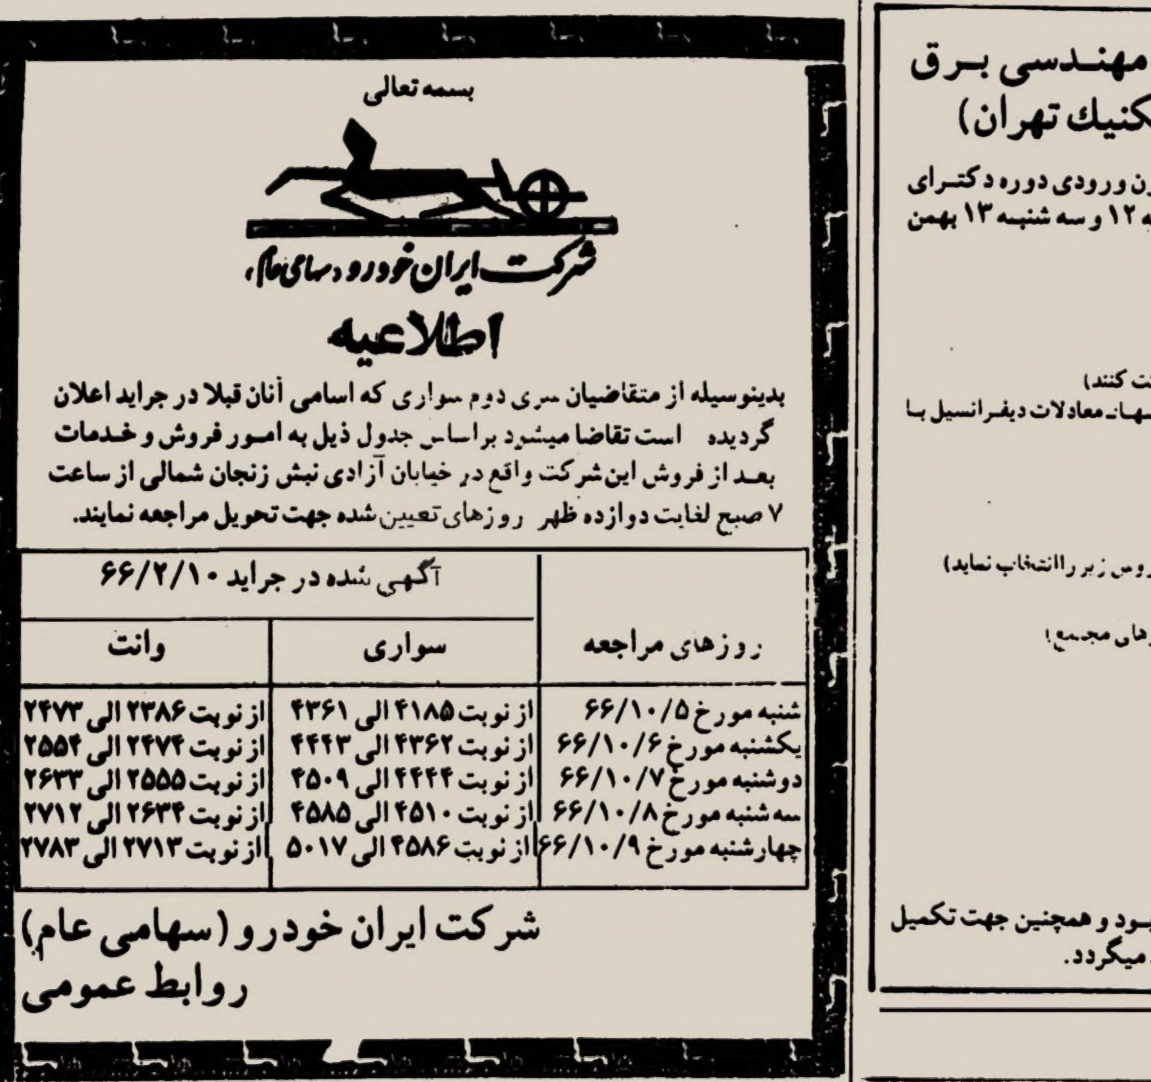 بسمه تعالی
شرکت ایران خودرو (سهامی عام)
اطلاعیه
بدینوسیله از متقاضیان سری دوم سواری که اسامی آنان قبلا در جراید اعلان
گردیده است تقاضا میشود براساس جدول ذیل به امور فروش و خدمات
بعد از فروش این شرکت واقع در خیابان آزادی نبش زنجان شمالی از ساعت
۷ صبح لغایت دوازده ظهر روزهای تعیین شده جهت تحویل مراجعه نمایند.
آگهی شده در جراید ۶۶/۲/۱۰
روزهای مراجعه سواری وانت
شنبه مورخ ۶۶/۱۰/۵ از نوبت ۴۱۸۵ الی ۴۳۶۱ از نوبت ۲۳۸۶ الی ۲۴۷۳
یکشنبه مورخ ۶۶/۱۰/۶ از نوبت ۴۳۶۲ الی ۴۴۴۳ از نوبت ۲۴۷۴ الی ۲۵۵۴
دوشنبه مورخ ۶۶/۱۰/۷ از نوبت ۴۴۴۴ الی ۴۵۰۹ از نوبت ۲۵۵۵ الی ۲۶۳۳
سه شنبه مورخ ۶۶/۱۰/۸ از نوبت ۴۵۱۰ الی ۴۵۸۵ از نوبت ۲۶۳۴ الی ۲۷۱۲
چهارشنبه مورخ ۶۶/۱۰/۹ از نوبت ۴۵۸۶ الی ۵۰۱۷ از نوبت ۲۷۱۳ الی ۲۷۸۳
شرکت ایران خودرو (سهامی عام)
روابط عمومی
مهندسی برق
تهران)
ورودی دوره دکترای
۱۲ و سه شنبه ۱۳ بهمن
کنند)
معادلات دیفرانسیل با
زیر را انتخاب نماید)
مجتمع)
و همچنین جهت تکمیل
میگردد.